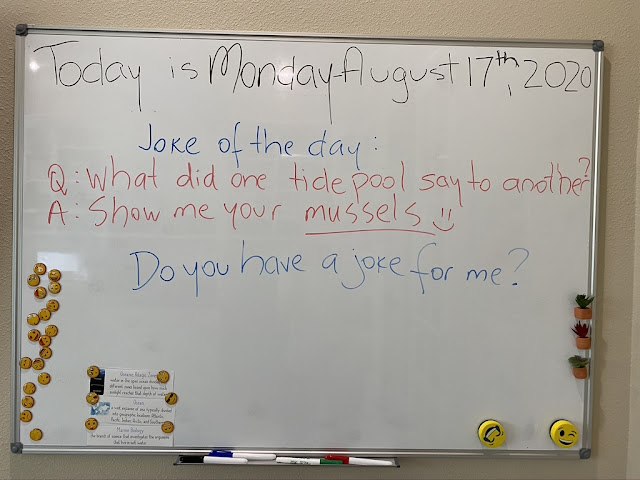 Today is Monday August 17th, 2020
Joke of the day:
Q: What did one tide pool say to another?
A: Show me your mussels
Do you have a joke for me?
Oceanic Pelagic Zone
water in the open ocean divided
different zones based upon how much
sunlight reaches that depth of water
Ocean
a vast expanse of sea typically divided
into geographic locations: Atlantic,
Pacific, Indian, Arctic, and Southern
Marine Biology
the branch of science that investigates the organisms
that live in salt water